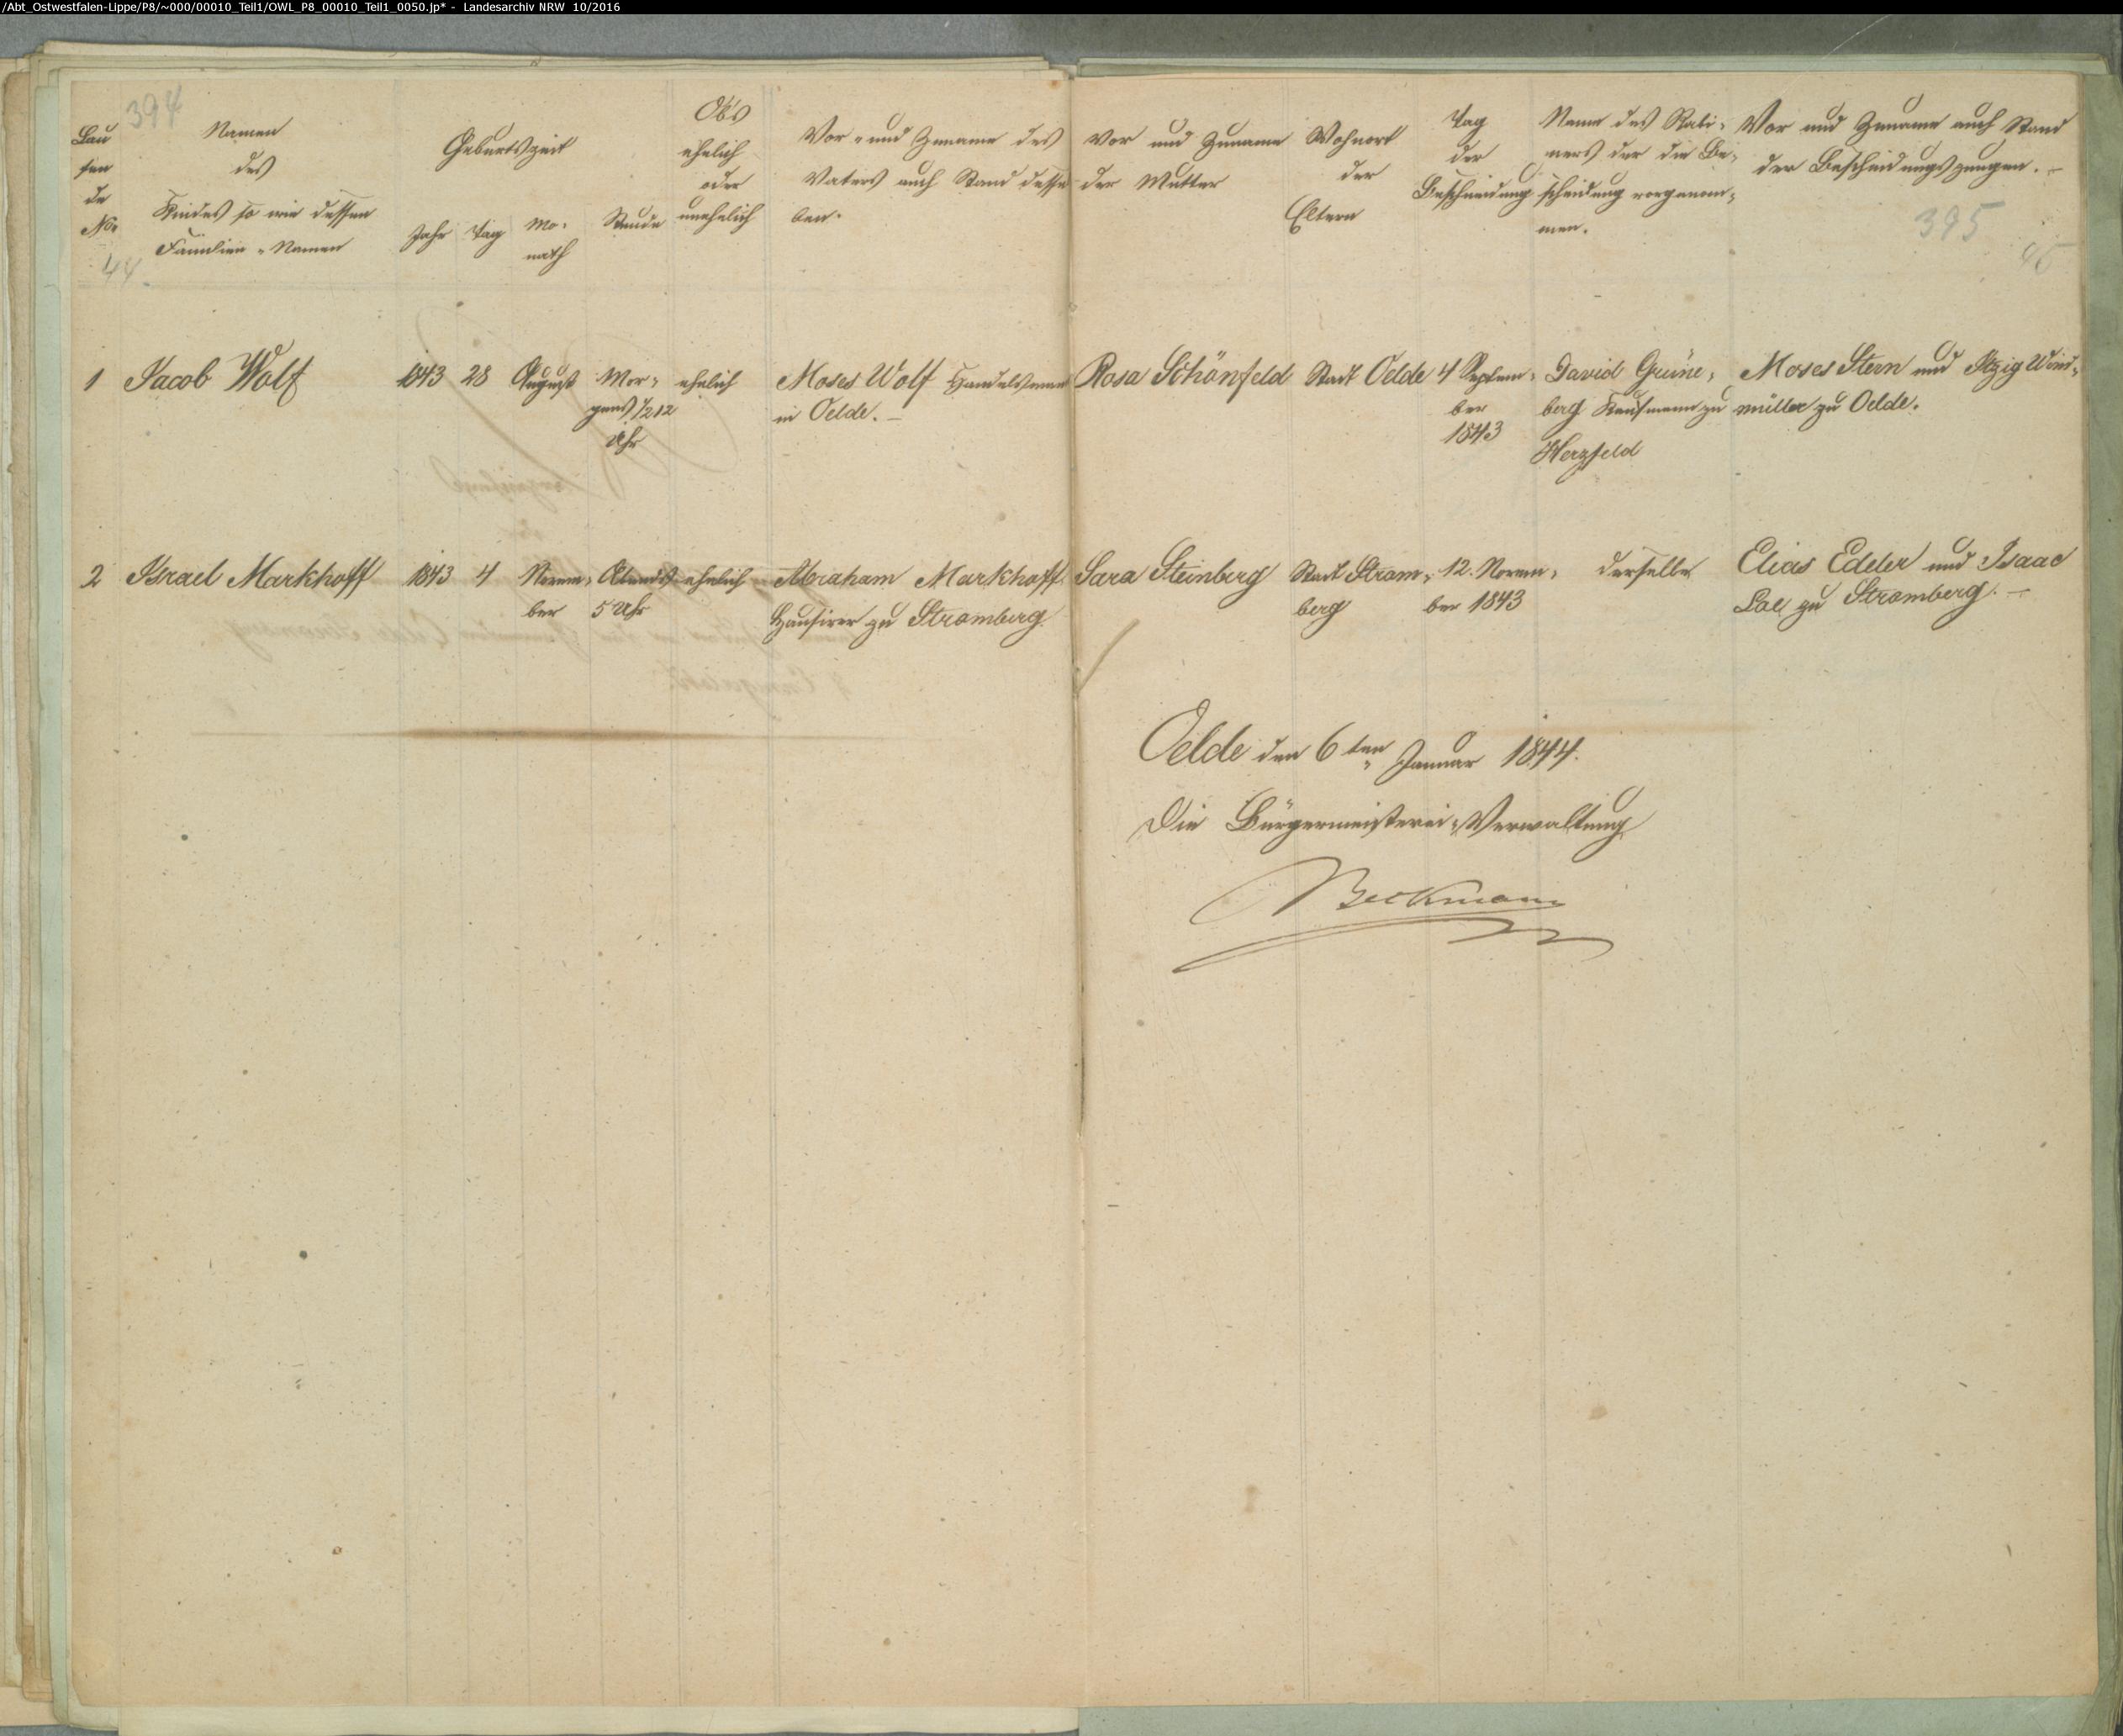 /Abt_Ostwestfalen-Lippe/P8/~000/00010_Teil1/OWL_P8_00010_Teil1_0050.jp* - Landesarchiv NRW 10/2016
394
Lau
fen
de
No.
44.
Namen
des
Kindes so wie dessen
Familien-Namen
Geburtszeit
Jahr Tag Mo-
nath
Stunde
Ob's
ehelich
oder
unehelich
Vor- und Zuname des
Vaters auch Stand dessel
ben.
Vor und Zuname
der Mutter
Wohnort
der
Eltern
Tag
der
Beschneidung
Name des Rabi-
ners der die Be-
schneidung vorgenom-
men.
Vor und Zuname auch Stand
der Beschneidungszeugen. -
395
45
1 Jacob Wolf 1843 28 August Mor- ehelich Moses Wolf Handelsmann Rosa Schönfeld Stadt Oelde 4 Septem- David Grüne- Moses Stern und Itzig Wind-
gens 1/2 12 in Oelde. - ber berg Kaufmann zu müller zu Oelde.
Uhr 1843 Herzfeld
2 Israel Markhoff 1843 4 Novem- Abends ehelich Abraham Markhoff Sara Steinberg Stadt Strom- 12. Novem- derselbe Elias Edeler und Isaac
ber 5 Uhr Hausirer zu Stromberg berg ber 1843 Loe zu Stromberg. -
Oelde den 6ten Januar 1844.
Die Bürgermeisterei-Verwaltung
Beckmann